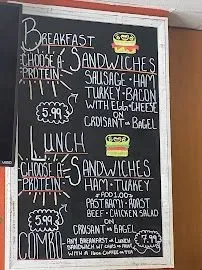 BREAKFAST
SANDWICHES
CHOOSE A
PROTEIN
SAUSAGE · HAM
TURKEY · BACON
WITH EGG & CHEESE
ON
CROISANT OR BAGEL
5.99
LUNCH
SANDWICHES
CHOOSE A
PROTEIN
HAM · TURKEY
ADD 1.00
PASTRAMI · ROAST
BEEF · CHICKEN SALAD
ON
CROISANT OR BAGEL
5.99
COMBO
ANY BREAKFAST OR LUNCH
SANDWICH W/ CHIPS
WITH A 16oz COFFEE OR TEA
7.99